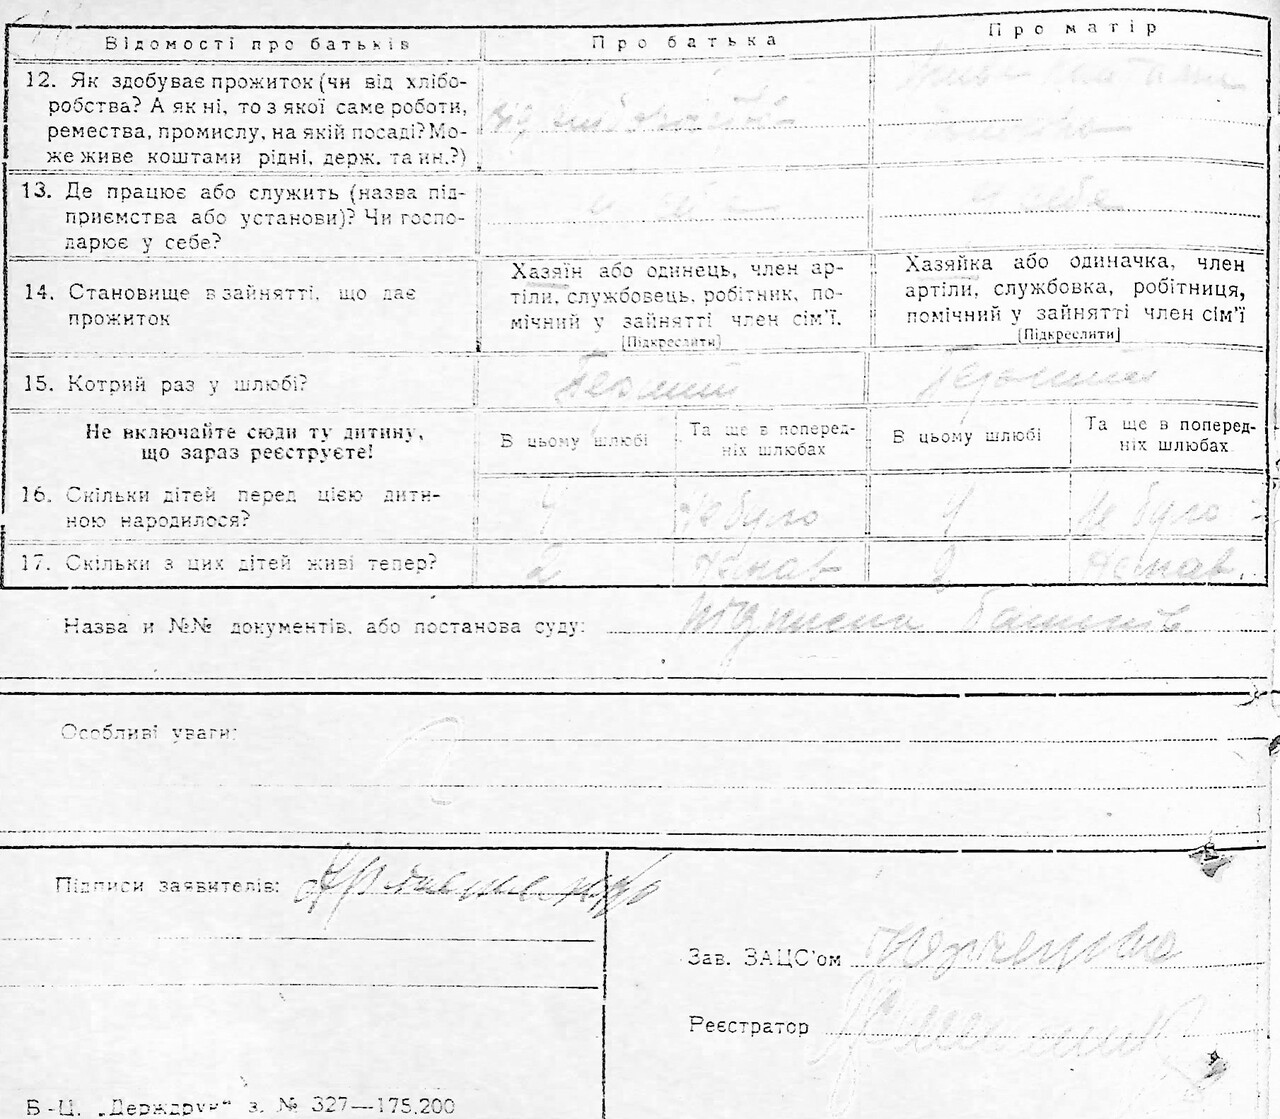 Відомості про батьків
Про батька
Про матір
12. Як здобуває прожиток (чи від хлібо-
робства? А як ні, то з якої саме роботи,
ремества, промислу, на якій посаді? Мо-
же живе коштами рідні, держ. та ин.?)
Від хліборобства
13. Де працює або служить (назва під-
приємства або установи)? Чи госпо-
дарює у себе?
у себе
у себе
14. Становище в зайнятті, що дає
прожиток
Хазяїн або одинець, член ар-
тіли, службовець, робітник, по-
мічний у зайнятті член сім'ї.
[Підкреслити]
Хазяйка або одиначка, член
артіли, службовка, робітниця,
помічний у зайнятті член сім'ї
[Підкреслити]
15. Котрий раз у шлюбі?
Первий
Не включайте сюди ту дитину,
що зараз реєструєте!
В цьому шлюбі
Та ще в поперед-
ніх шлюбах
В цьому шлюбі
Та ще в поперед-
ніх шлюбах
16. Скільки дітей перед цією дити-
ною народилося?
4
не було
4
не було
17. Скільки з цих дітей живі тепер?
2
немає
2
немає
Назва и №№ документів, або постанова суду:
батьків
Особливі уваги:
Підписи заявителів:
Зав. ЗАЦС'ом
Реєстратор
Б-Ц. „Держдрук" з. № 327—175.200